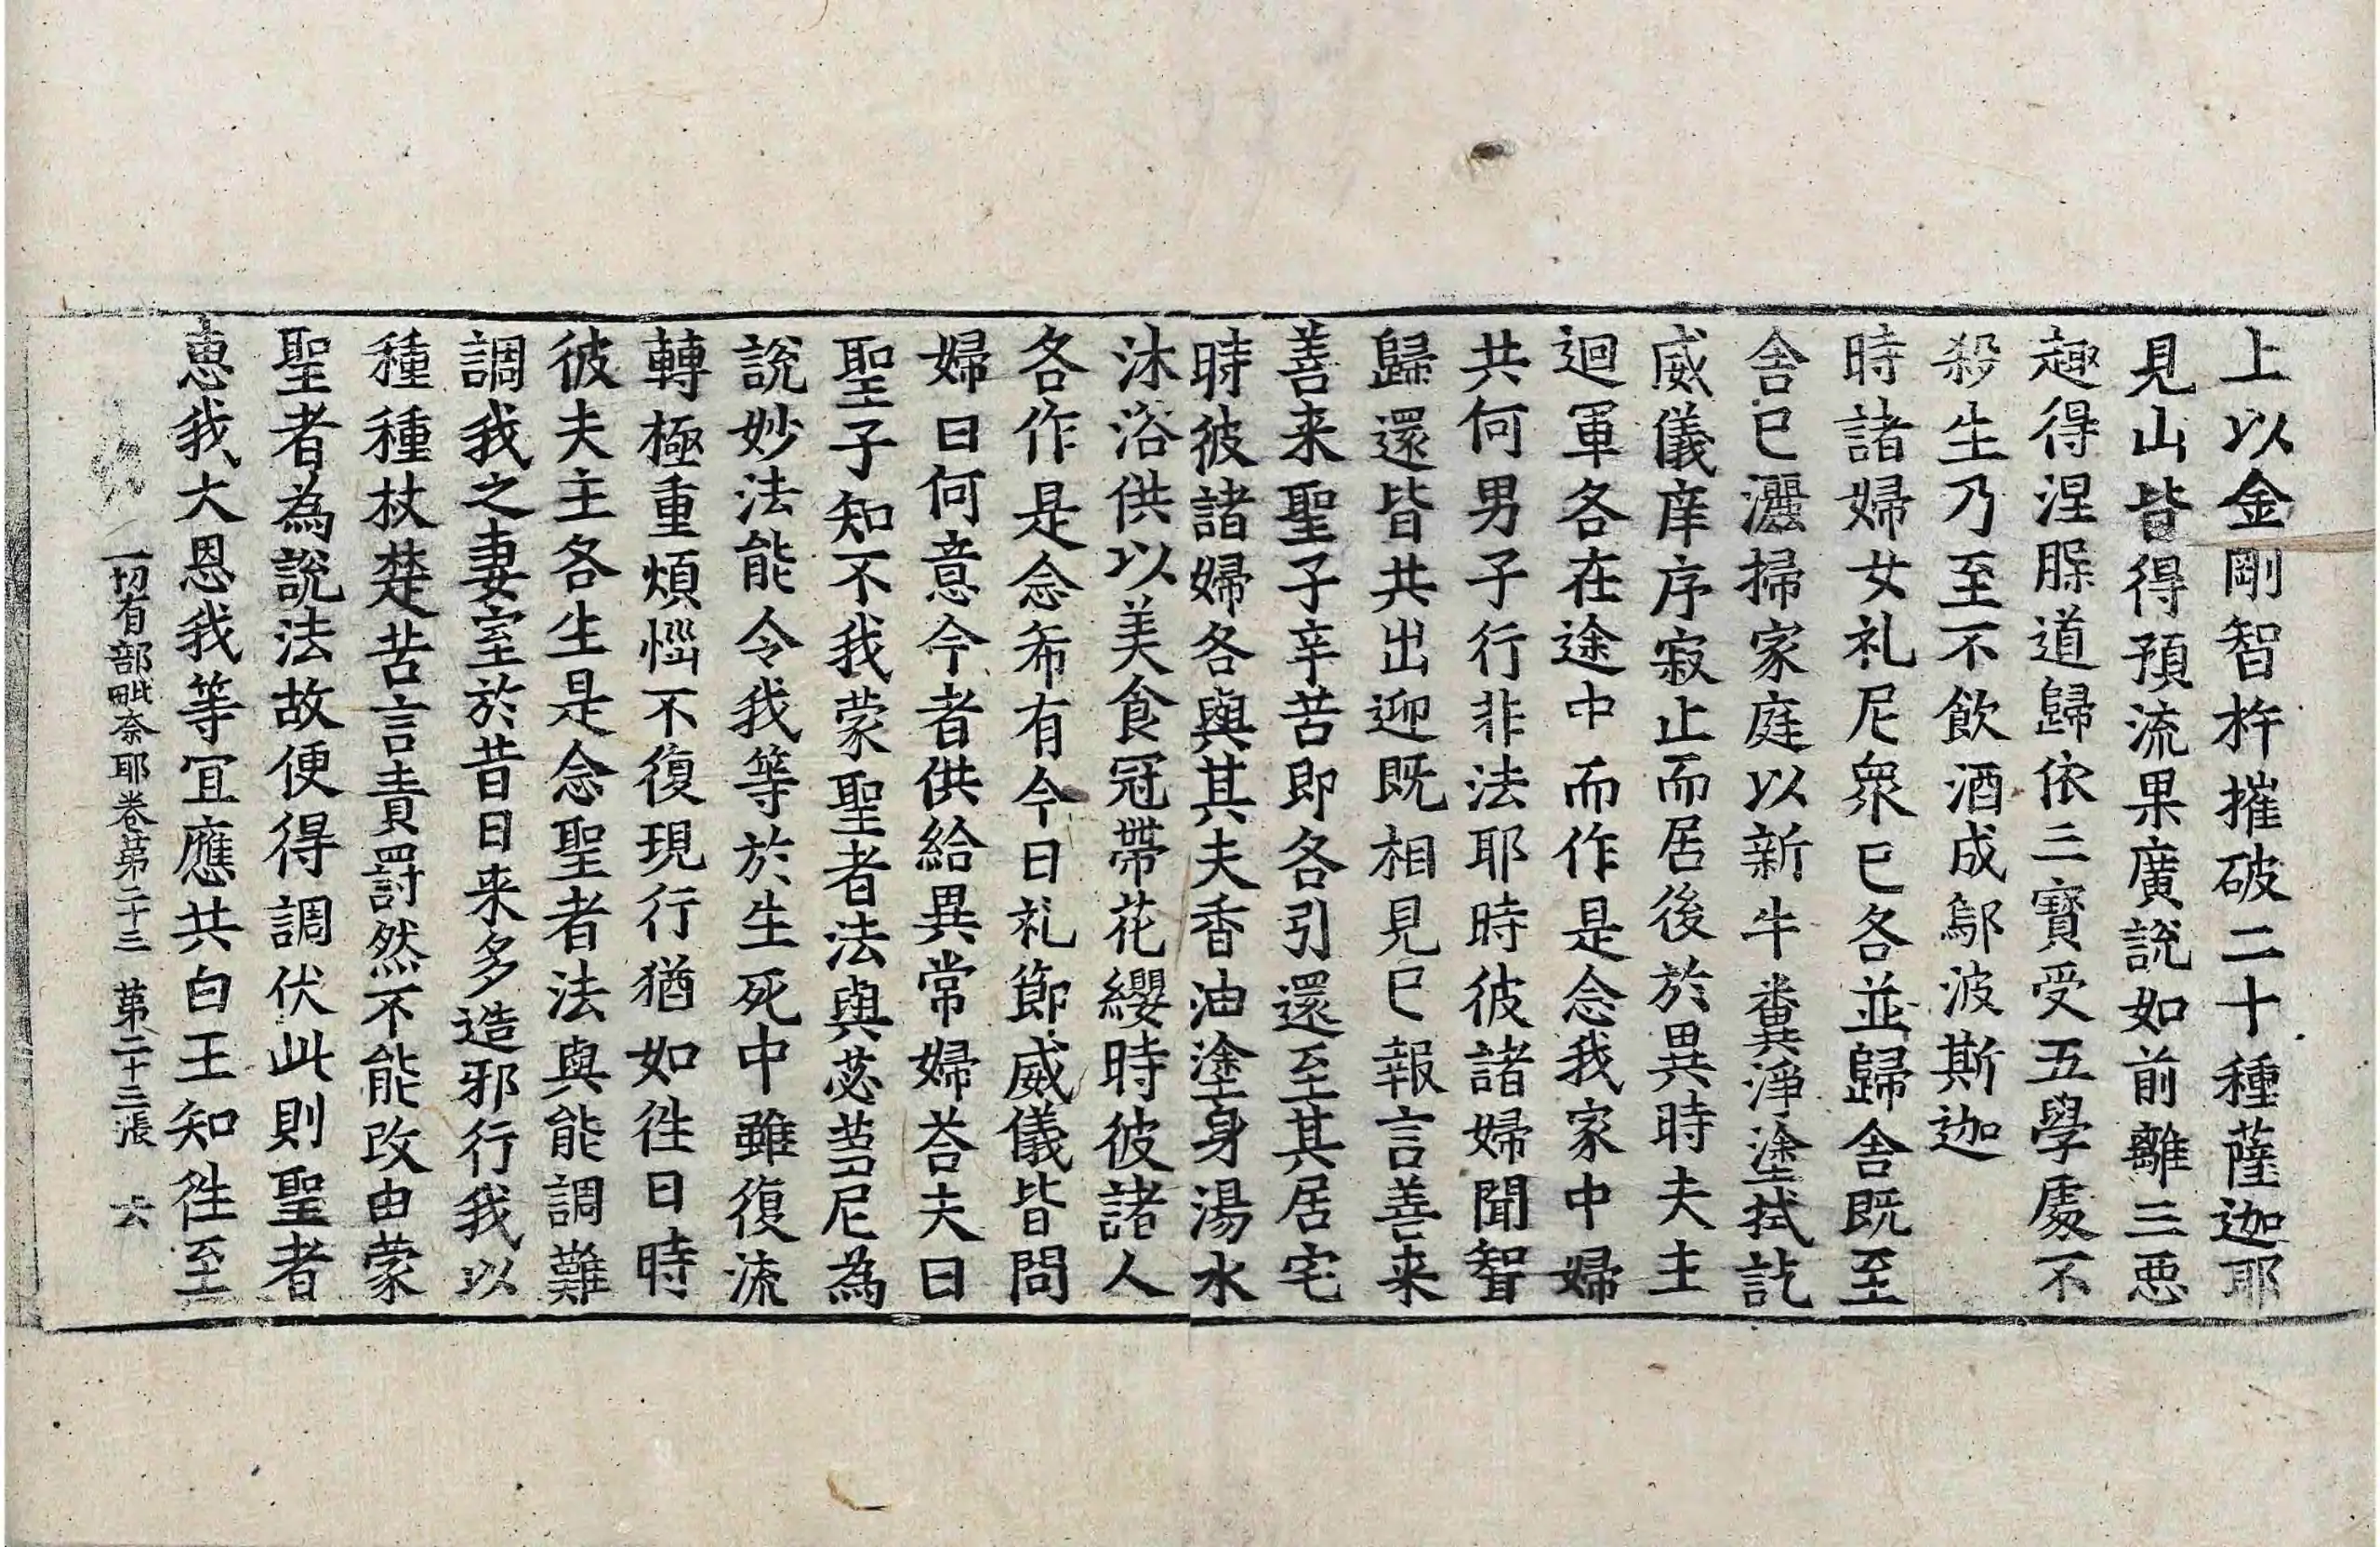 上以金剛智杵摧破二十種薩迦耶
見山皆得預流果廣説如前離三惡
趣得涅㬋道歸依三寶受五學處不
殺生乃至不飲酒成鄔波斯迦
時諸婦女礼尼衆已各並歸舎既至
舎已灑掃家庭以新牛糞淨塗拭訖
威儀庠序寂止而居後於異時夫主
迴軍各在途中而作是念我家中婦
共何男子行非法耶時彼諸婦聞聟
歸還皆共出迎既相見已報言善来
善来聖子辛苦即各引還至其居宅
時彼諸婦各與其夫香油塗身湯水
沐浴供以美食冠帶花纓時彼諸人
各作是念希有今日礼節威儀皆問
婦曰何意今者供給異常婦荅夫曰
聖子知不我蒙聖者法與苾芻尼為
説妙法能令我等於生死中雖復流
轉極重煩惱不復現行猶如往日時
彼夫主各生是念聖者法與能調難
調我之妻室於昔日来多造邪行我以
種種杖楚苦言責罰然不能改由蒙
聖者為説法故便得調伏此則聖者
恵我大恩我等冝應共白王知往至
一切有部毗奈耶卷第二十三 第二十三張 六